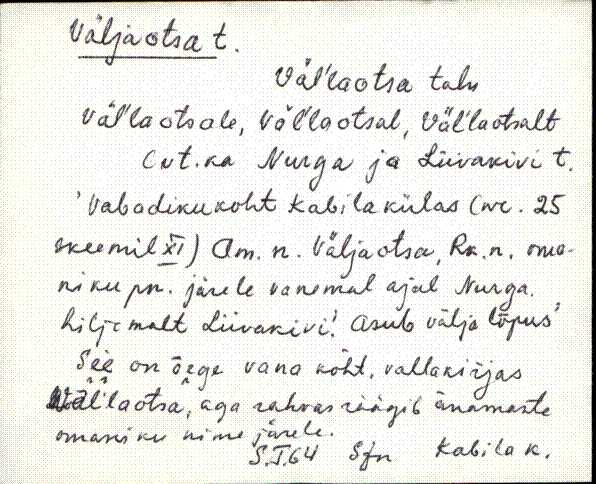 Väljaotsa t.
Väl'laotsa talu
Väl'laotsale, Väl'laotsal, Väl'laotsalt
(vt. ka Nurga ja Liivakivi t.
'Vabadikukoht Kabilakülas (nr. 25
skeemil XI) Am. n. Väljaotsa, Rk. n. oma-
niku pn. järele vanemal ajal Nurga.
hiljemalt Liivakivi! Asub välja lõpus'
See on õege vana koht. vallakirjas
Väl'laotsa, aga rahvas räägib änamaste
omaniku nime järele.
S.I.64 Sjn Kabila k.